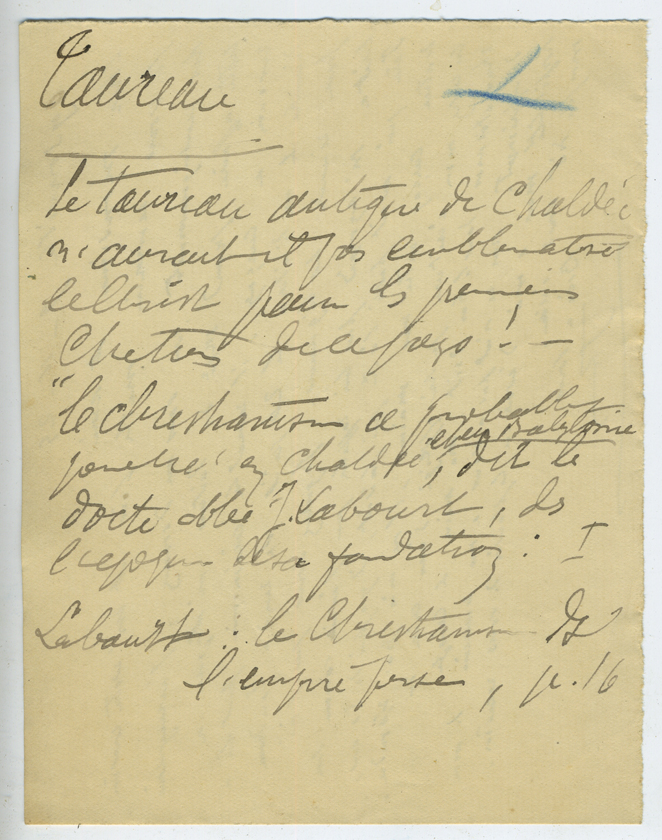 Taureau
Le Taureau antique de Chaldée
n'aurait-il pas emblématisé
le Christ pour les premiers
Chrétiens de ce pays ! —
"le christianisme a probablement
et en Babylonie
pénétré en Chaldée, dit le
docte abbé J. Labourt, dès
l'époque de sa fondation : I
Labourt : le Christianisme ds
l'empire perse, p. 16